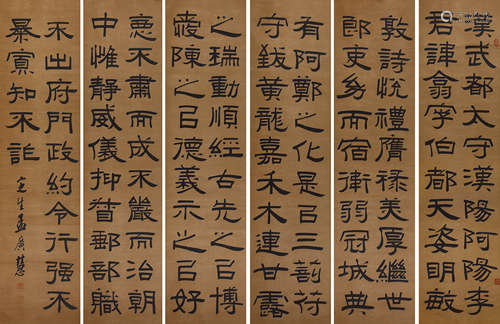 漢武都太守漢陽阿陽李
君諱翕字伯都天姿明敏
敦詩悅禮膺祿美厚繼世
郎吏幼而宿衛弱冠城典
有阿鄭之化是㠯三剖符
守致黃龍嘉禾木連甘露
之瑞動順經古先之㠯博
愛陳之㠯德義示之㠯好
惡不肅而成不嚴而治朝
中惟靜威儀抑督郵部職
不出府門政約令行强不
暴寡知不詐
定生孟廣慧